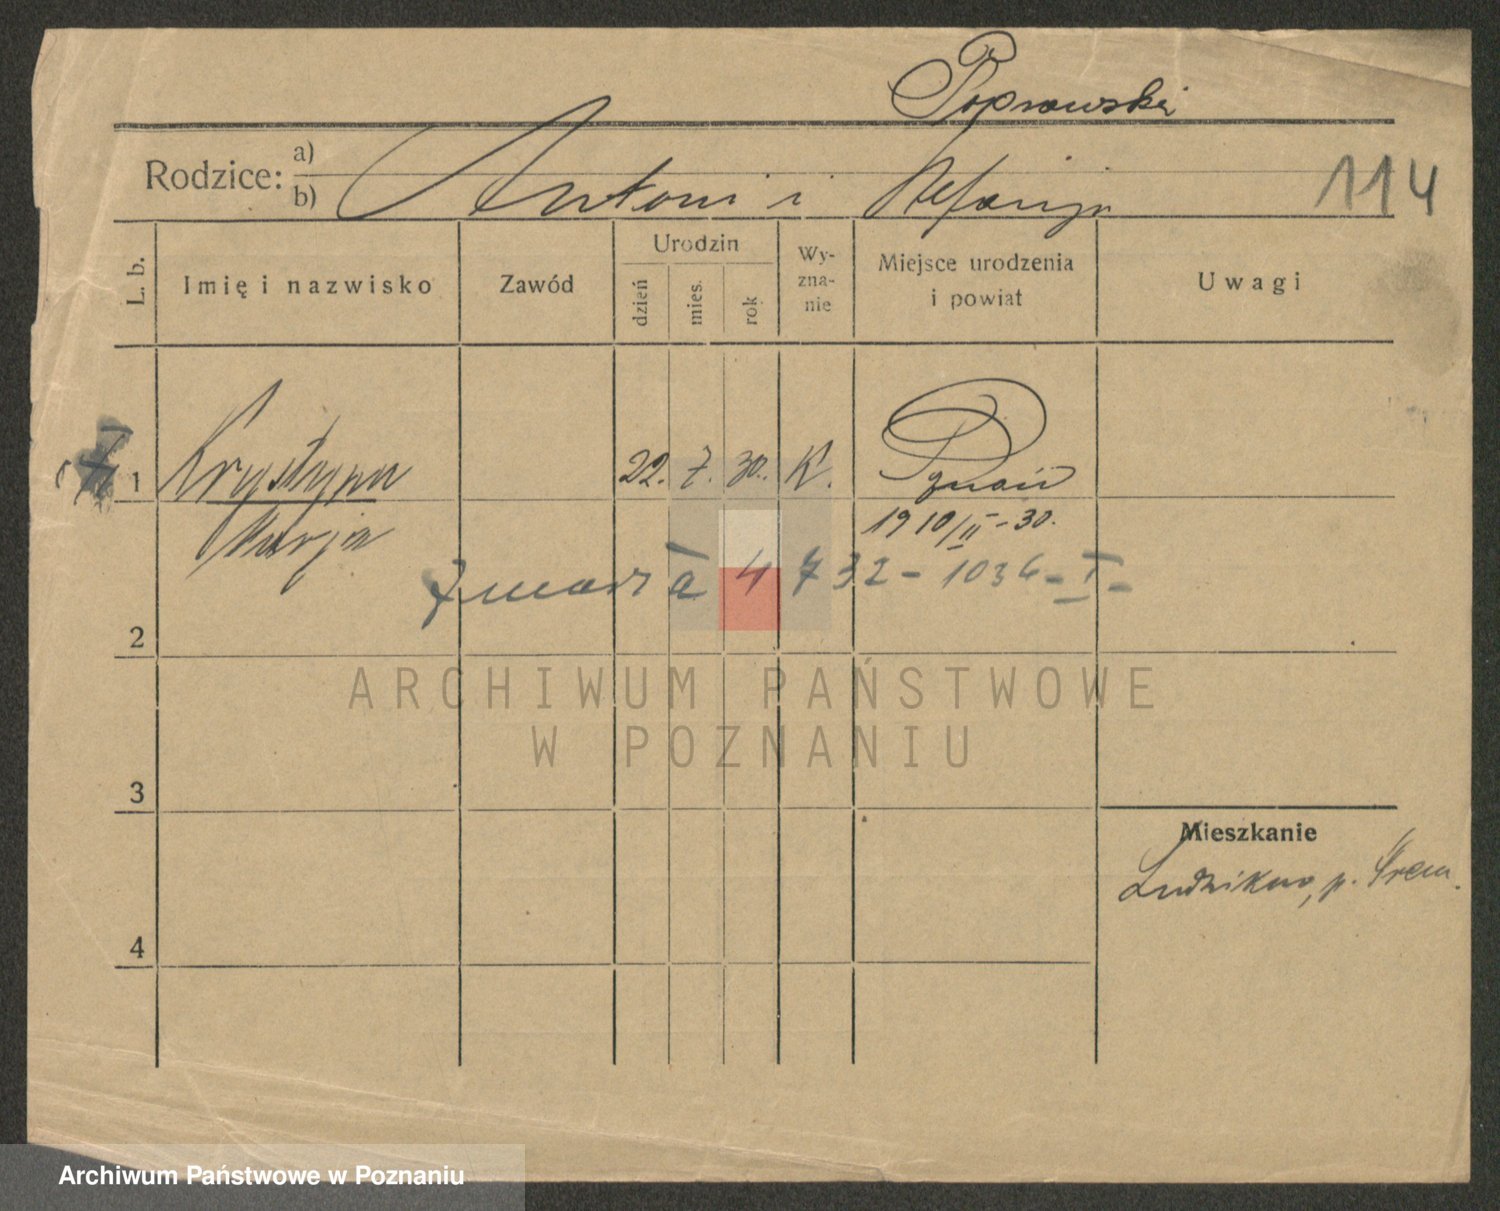 Poprawski
Rodzice: a)
b) Antoni i Stefanja
114
L. b.
Imię i nazwisko
Zawód
Urodzin
dzień
mies.
rok
Wy-
zna-
nie
Miejsce urodzenia
i powiat
Uwagi
1 Krystyna 22. 7. 30. K. Poznań
Marja 1910/II-30.
zmarła 4 7 32 - 1036 - I -
2
ARCHIWUM PAŃSTWOWE
W POZNANIU
3
Mieszkanie
p. Śrem.
4
Archiwum Państwowe w Poznaniu